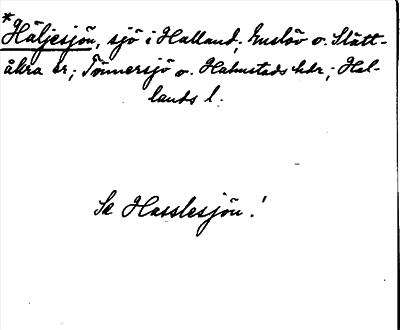 *Häljesjön, sjö i Halland, Enslöv o. Slätt-
åkra sr; Tönnersjö o. Halmstads hdr; Hal-
lands l.
Se Hasslesjön!